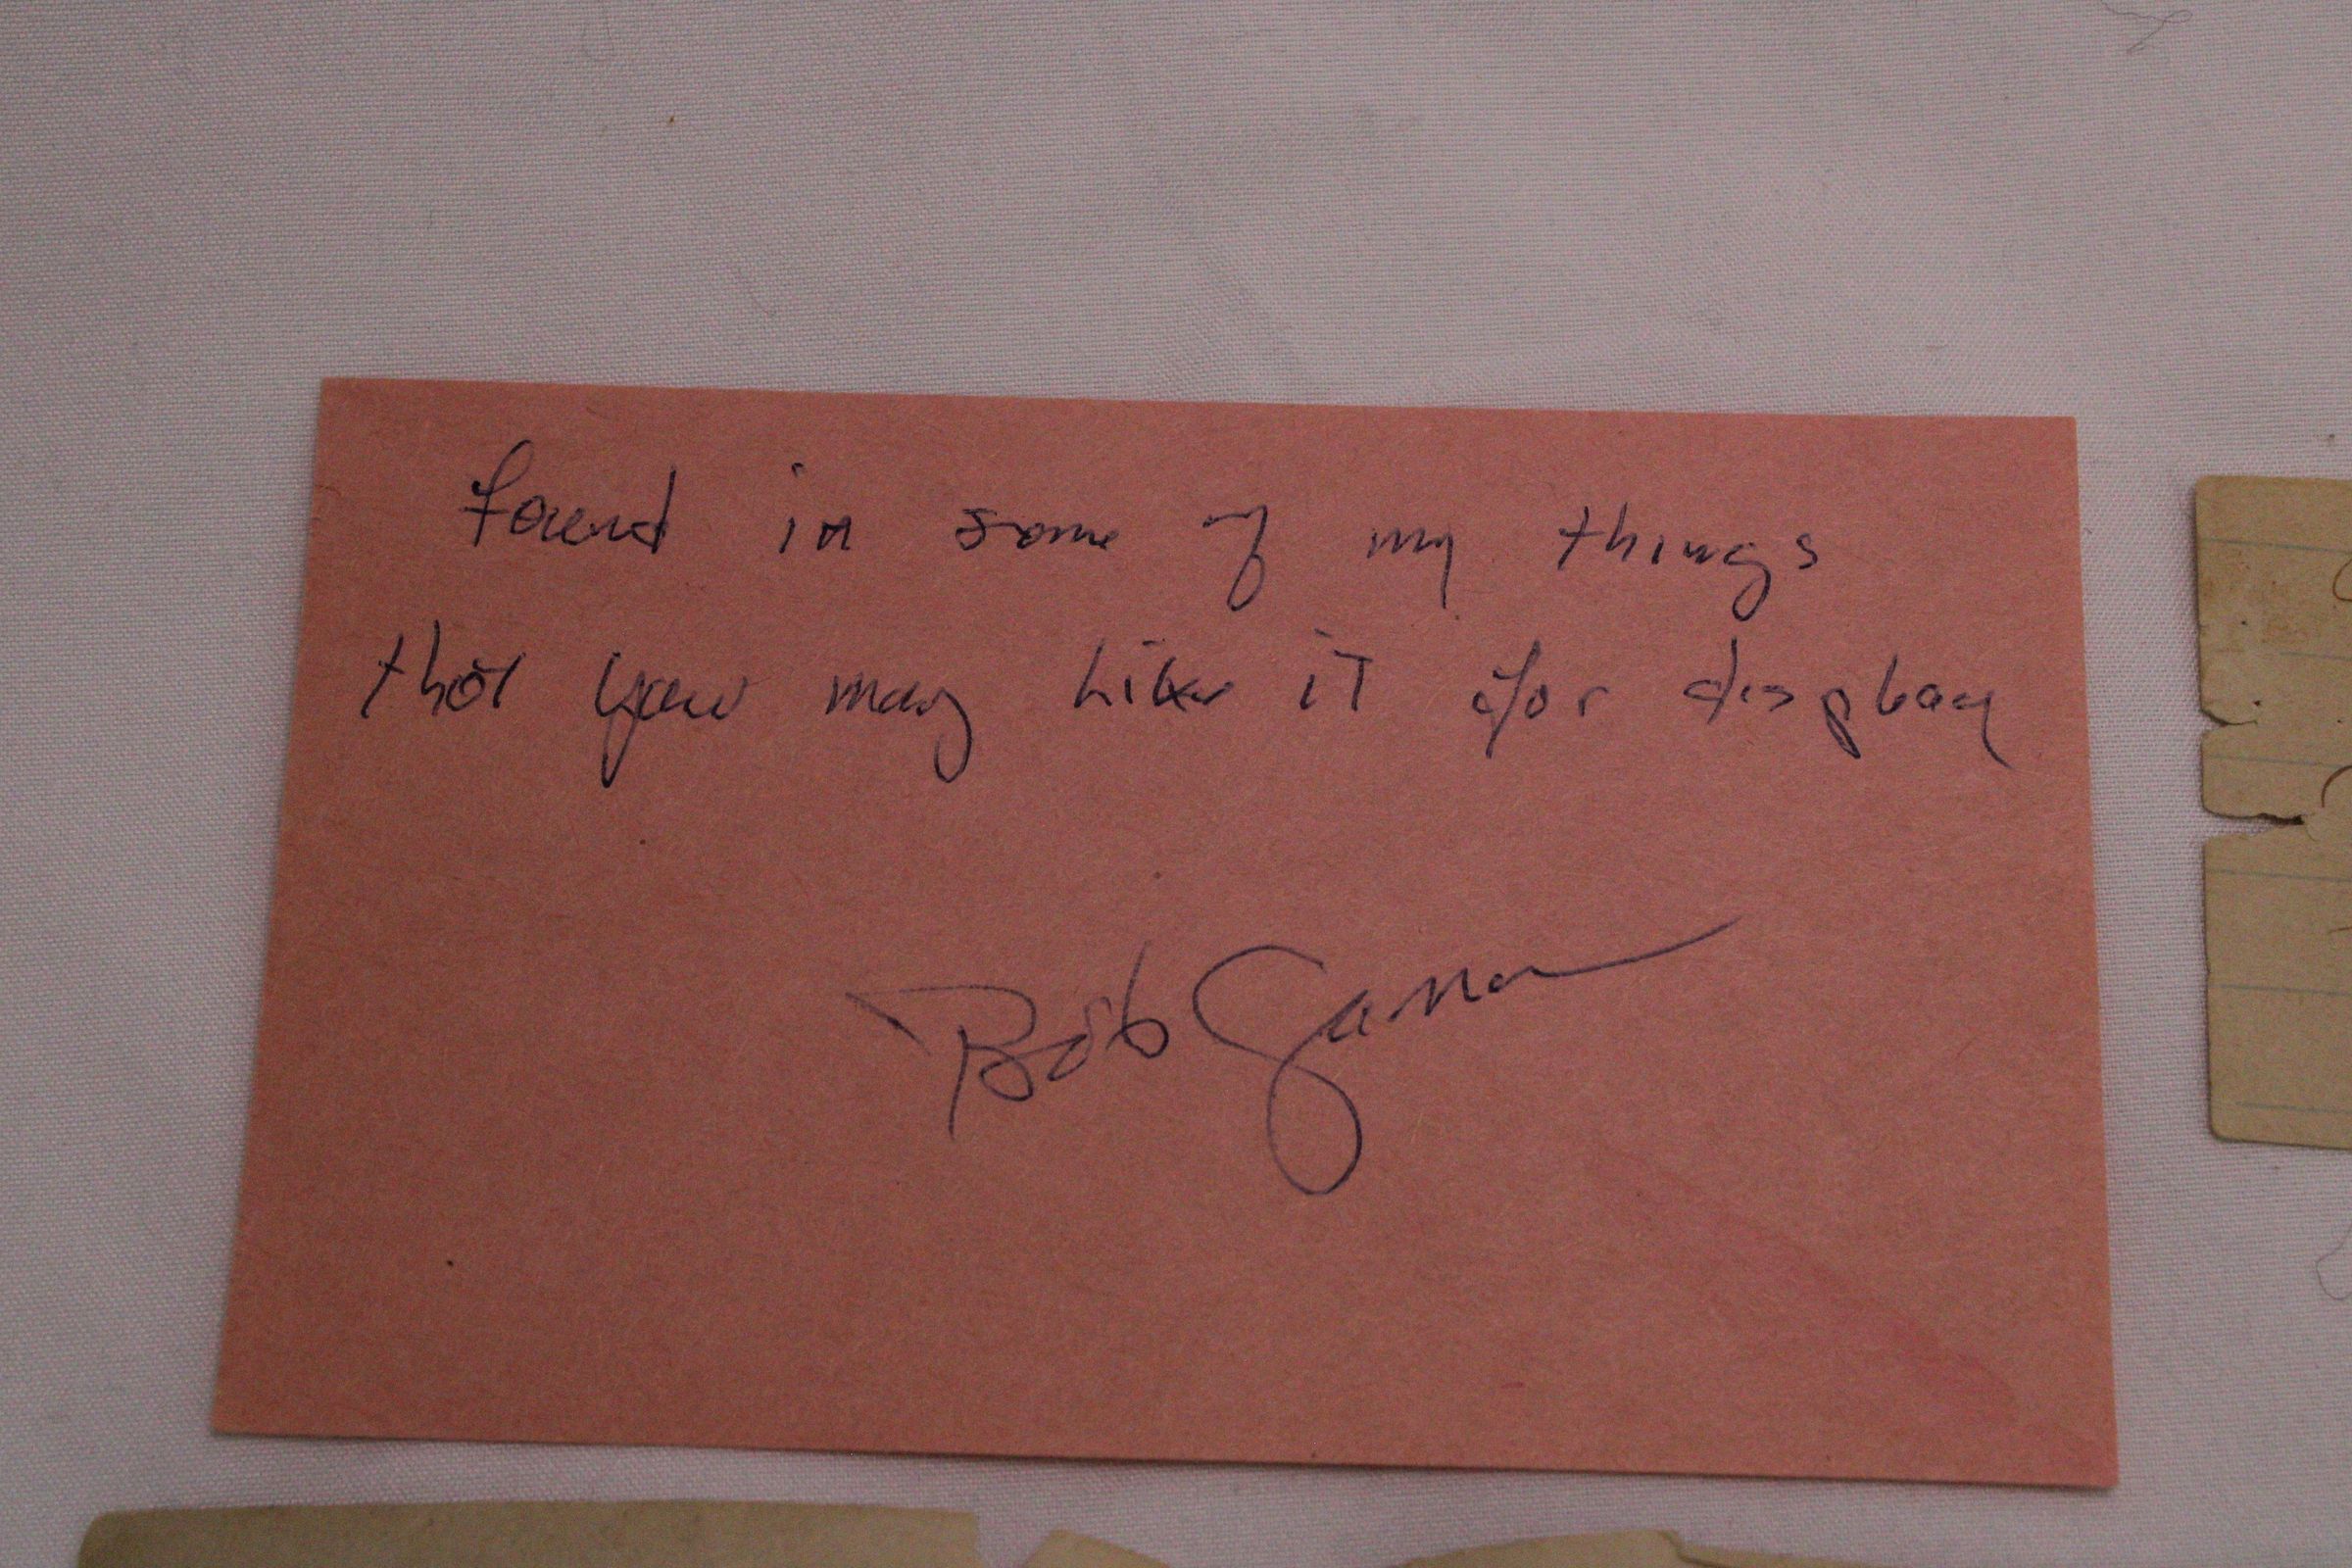 found in some of my things
that you may like it for display
Bob